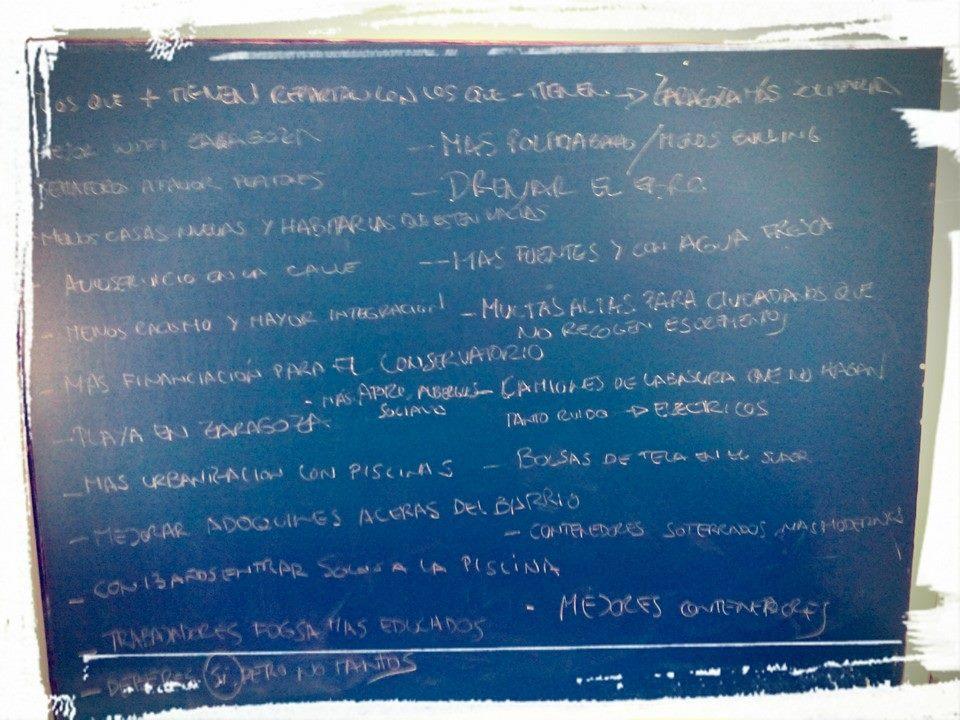 LOS QUE + TIENEN REPARTAN CON LOS QUE - TIENEN → ZARAGOZA MÁS SOLIDARIA
MEJOR WIFI ZARAGOZA
- MAS POLIDEPORT / MENOS BULLING
SEMAFOROS A FAVOR PEATONES
- DRENAR EL EBRO
MENOS CASAS NUEVAS Y HABITAR LAS QUE ESTEN VACIAS
- AUTOSERVICIO EN LA CALLE
- MAS FUENTES Y CON AGUA FRESCA
- MENOS RACISMO Y MAYOR INTEGRACION
- MULTAS ALTAS PARA CIUDADANOS QUE
NO RECOGEN ESCREMENTOS
- MAS FINANCIACIÓN PARA EL CONSERVATORIO
- MAS APARC, ALBERGUES
SOCIALES
- CAMIONES DE LA BASURA QUE NO HAGAN
TANTO RUIDO → ELECTRICOS
- PLAYA EN ZARAGOZA
- MAS URBANIZACION CON PISCINAS
- BOLSAS DE TELA EN EL SUPER
- MEJORAR ADOQUINES ACERAS DEL BARRIO
- CONTENEDORES SOTERRADOS, MAS MODERNOS
- CON 13 AÑOS ENTRAR SOLOS A LA PISCINA
- MEJORES CONTENEDORES
TRABAJADORES FOGSA MAS EDUCADOS
- DEBERES SI PERO NO TANTOS